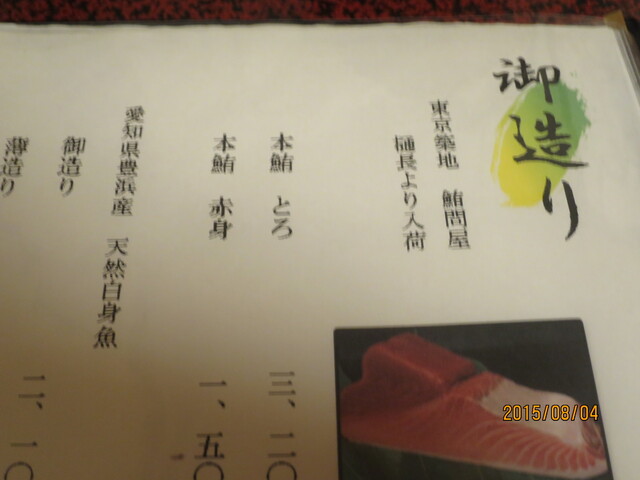 御造り
東京築地 鮪問屋
樋長より入荷
本鮪 とろ
三、二〇
本鮪 赤身
一、五〇
愛知県豊浜産 天然白身魚
御造り
薄造り
二、一〇
2015/08/04